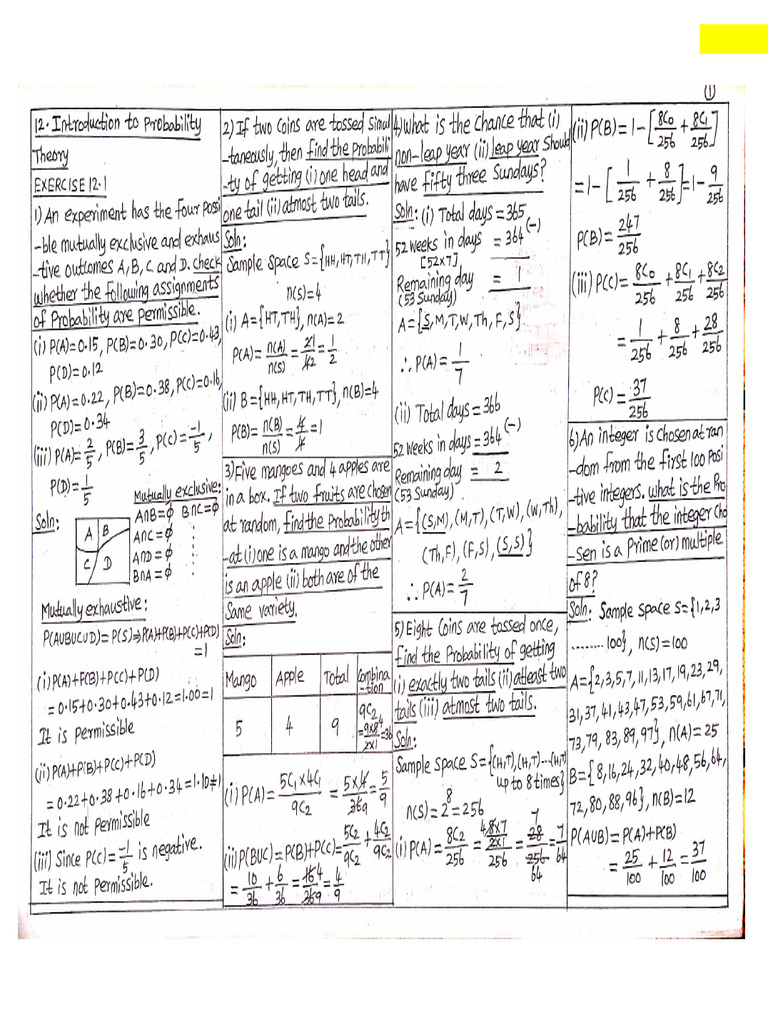 ①
12. Introduction to Probability
Theory
EXERCISE 12.1
1) An experiment has the four possi
-ble mutually exclusive and exhaus
-tive outcomes A, B, C and D. check
whether the following assignments
of Probability are permissible.
(i) P(A)=0.15, P(B)=0.30, P(C)=0.43,
P(D)=0.12
(ii) P(A)=0.22, P(B)=0.38, P(C)=0.16,
P(D)=0.34
(iii) P(A)=2/5, P(B)=3/5, P(C)=-1/5,
P(D)=1/5
Soln:
Mutually exclusive:
A∩B=ϕ B∩C=ϕ
A∩C=ϕ
A∩D=ϕ
B∩A=ϕ
A B
C D
Mutually exhaustive:
P(AUBUCUD)=P(S)⇒P(A)+P(B)+P(C)+P(D)
=1
(i) P(A)+P(B)+P(C)+P(D)
=0.15+0.30+0.43+0.12=1.00=1
It is permissible
(ii) P(A)+P(B)+P(C)+P(D)
=0.22+0.38+0.16+0.34=1.10≠1
It is not permissible
(iii) Since P(C)=-1/5 is negative.
It is not permissible.
2) If two coins are tossed simul
-taneously, then find the probabili
-ty of getting (i) one head and
one tail (ii) atmost two tails.
Soln:
Sample space S={HH, HT, TH, TT}
n(S)=4
(i) A={HT, TH}, n(A)=2
P(A)=n(A)/n(S)=2/4=1/2
(ii) B={HH, HT, TH, TT}, n(B)=4
P(B)=n(B)/n(S)=4/4=1
3) Five mangoes and 4 apples are
in a box. If two fruits are chosen
at random, find the probability th
-at (i) one is a mango and the other
is an apple (ii) both are of the
same variety.
Soln:
Mango Apple Total Combina
-tion
5 4 9 9C2
=9×8/2×1=36
(i) P(A)=5C1×4C1/9C2=5×4/36=5/9
(ii) P(BUC)=P(B)+P(C)=5C2/9C2+4C2/9C2
=10/36+6/36=16/36=4/9
4) What is the chance that (i)
non-leap year (ii) leap year should
have fifty three Sundays?
Soln: (i) Total days =365
52 weeks in days =364 (-)
[52×7]
Remaining day = 1
(53 Sunday)
A={S, M, T, W, Th, F, S}
∴ P(A)=1/7
(ii) Total days =366
52 weeks in days =364 (-)
Remaining day = 2
(53 Sunday)
A={(S,M), (M,T), (T,W), (W,Th),
(Th,F), (F,S), (S,S)}
∴ P(A)=2/7
5) Eight coins are tossed once,
find the Probability of getting
(i) exactly two tails (ii) atleast two
tails (iii) atmost two tails.
Soln:
Sample space S={(H,T), (H,T)...(H,T)
up to 8 times}
n(S)=2⁸=256
(i) P(A)=8C2/256=8×7/2×1/256=28/256=7/64
(ii) P(B)=1-[8C0/256+8C1/256]
=1-[1/256+8/256]=1-9/256
P(B)=247/256
(iii) P(C)=8C0/256+8C1/256+8C2/256
=1/256+8/256+28/256
P(C)=37/256
6) An integer is chosen at ran
-dom from the first 100 posi
-tive integers. what is the Pro
-bability that the integer cho
-sen is a Prime (or) multiple
of 8?
Soln: Sample space S={1,2,3
........100}, n(S)=100
A={2,3,5,7,11,13,17,19,23,29,
31,37,41,43,47,53,59,61,67,71,
73,79,83,89,97}, n(A)=25
B={8,16,24,32,40,48,56,64,
72,80,88,96}, n(B)=12
P(AUB)=P(A)+P(B)
=25/100+12/100=37/100